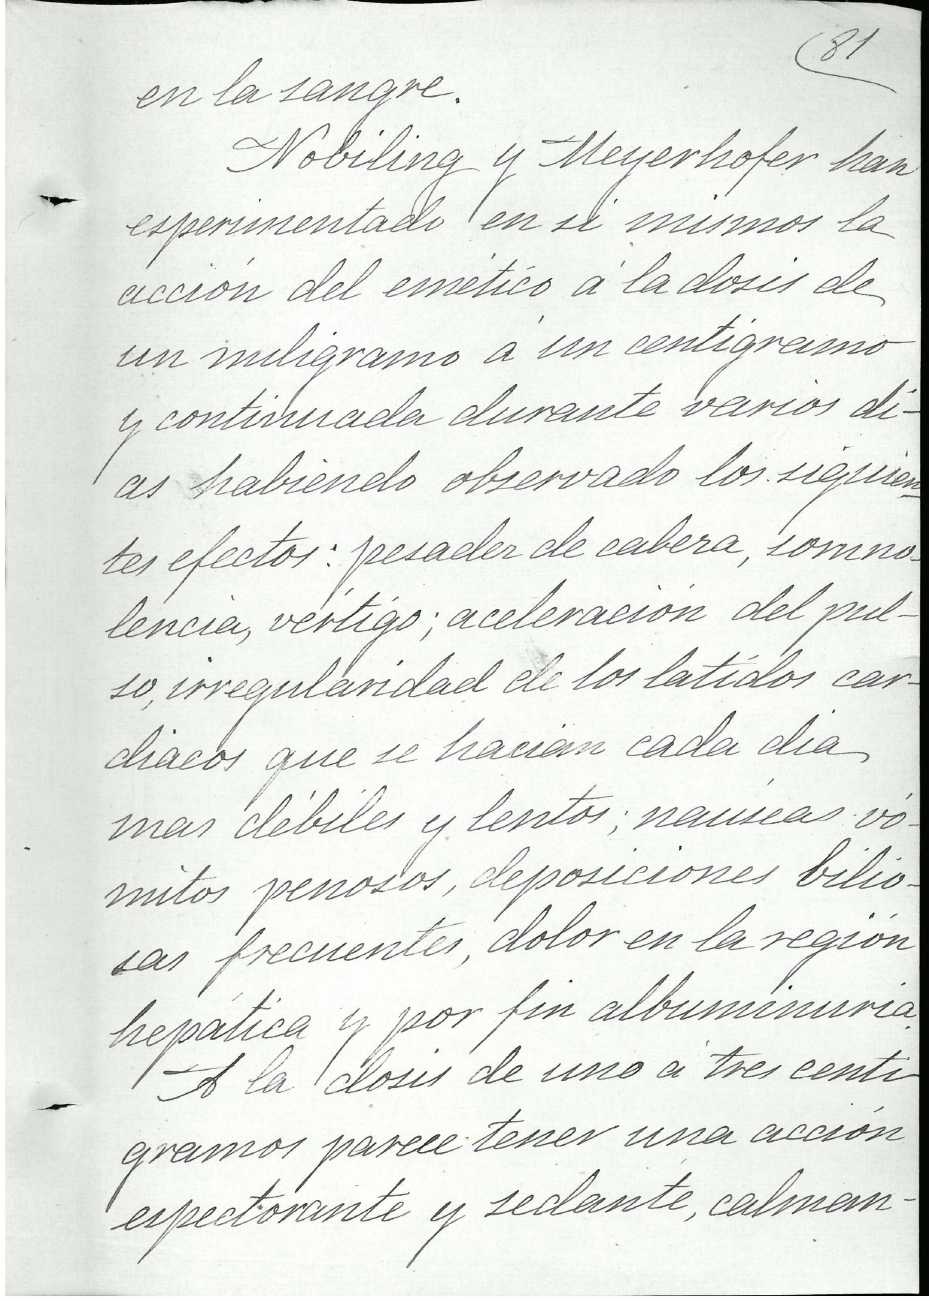 81
en la sangre.
Nobiling y Meyerhofer han
esperimentado en si mismos la
acción del emético á la dosis de
un miligramo á un centigramo
y continuada durante varios di-
as habiendo observado los siguien-
tes efectos: pesadez de cabeza, somno-
lencia, vértigo; aceleración del pul-
so, irregularidad de los latidos car-
diacos que se hacian cada dia
mas débiles y lentos; nauseas vó-
mitos penosos, deposiciones bilio-
sas frecuentes, dolor en la región
hepática y por fin albuminuria.
A la dosis de uno á tres centi-
gramos parece tener una acción
espectorante y sedante, calman-